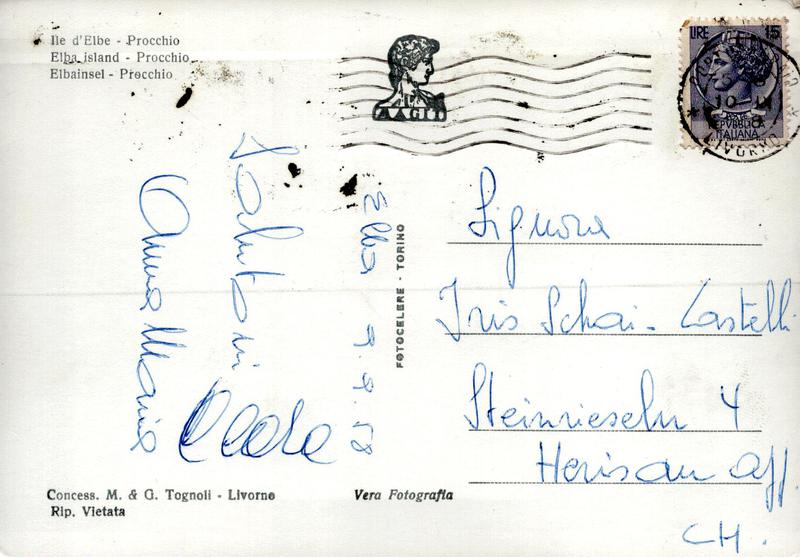 Ile d'Elbe - Procchio
Elba island - Procchio
Elbainsel - Procchio
LIRE 15
POSTE
REPVBBLICA
ITALIANA
LIVORNO
Elba 9.9.58
Saluti
Anna Maria
FOTOCELERE - TORINO
Signora
Iris Schai - Castelli
Steinrieseln 4
Herisau App.
CH.
Concess. M. & G. Tognoli - Livorno
Rip. Vietata
Vera Fotografia